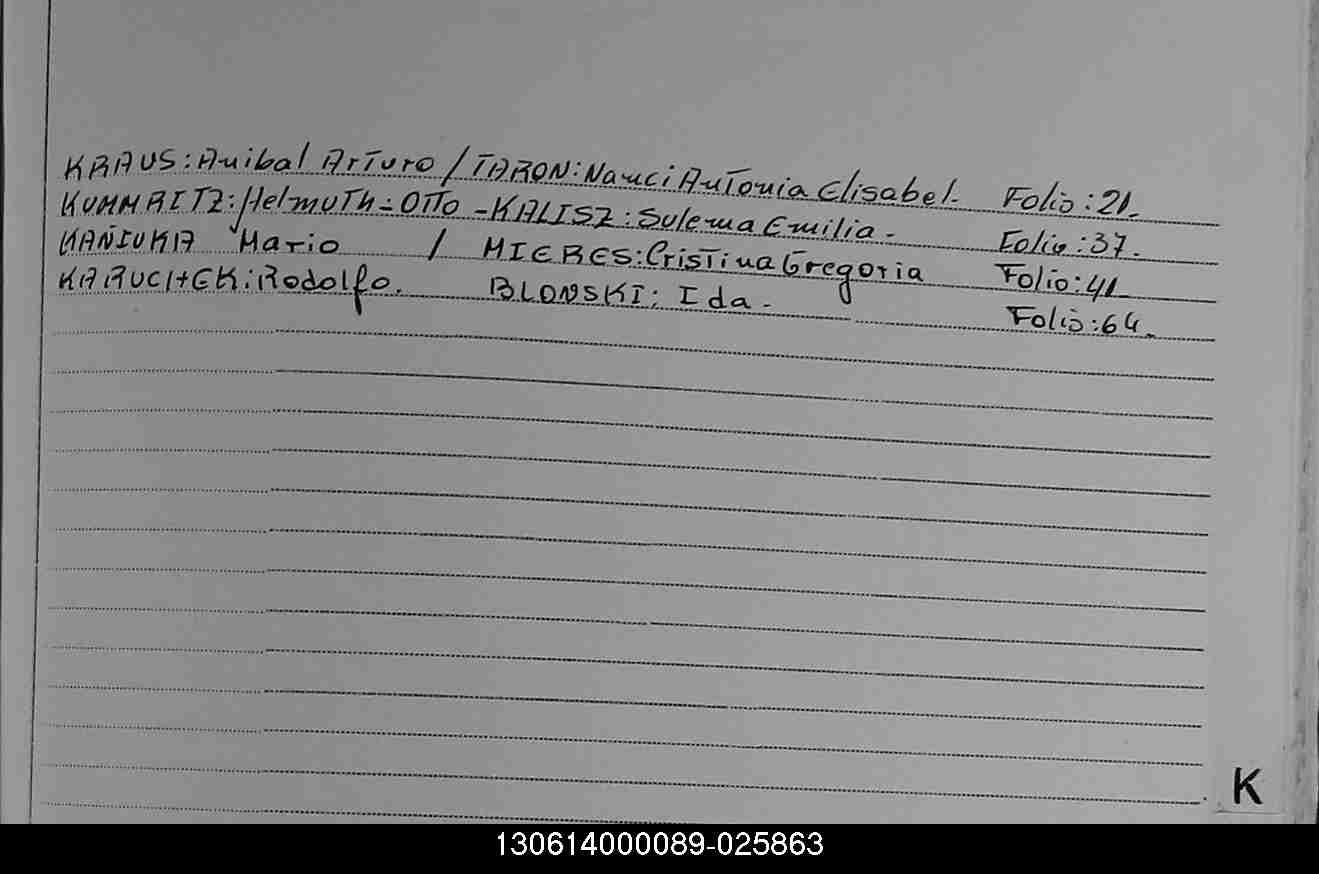 KRAUS: Anibal Arturo / TARON: Nanci Antonia Elisabel. Folio: 21.
KUMMRITZ: Helmuth - Otto - KALISZ: Sulema Emilia. Folio: 37.
KAÑIUKA Mario / MIERES: Cristina Gregoria Folio: 41
KARUCHEK: Rodolfo. BLONSKI: Ida. Folio: 64.
K
130614000089-025863